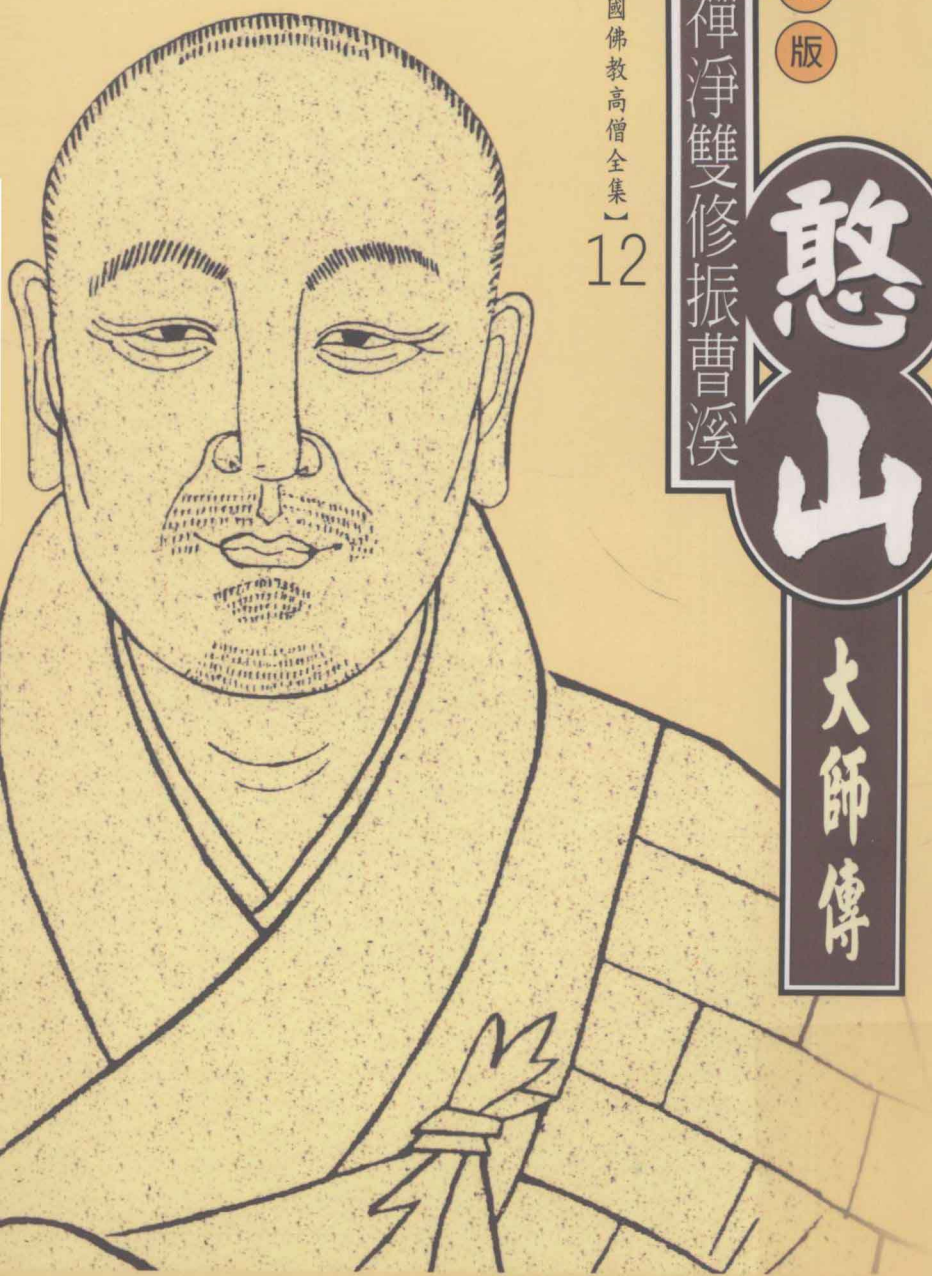 版
憨山
大師傳
禪淨雙修振曹溪
國佛教高僧全集】
12